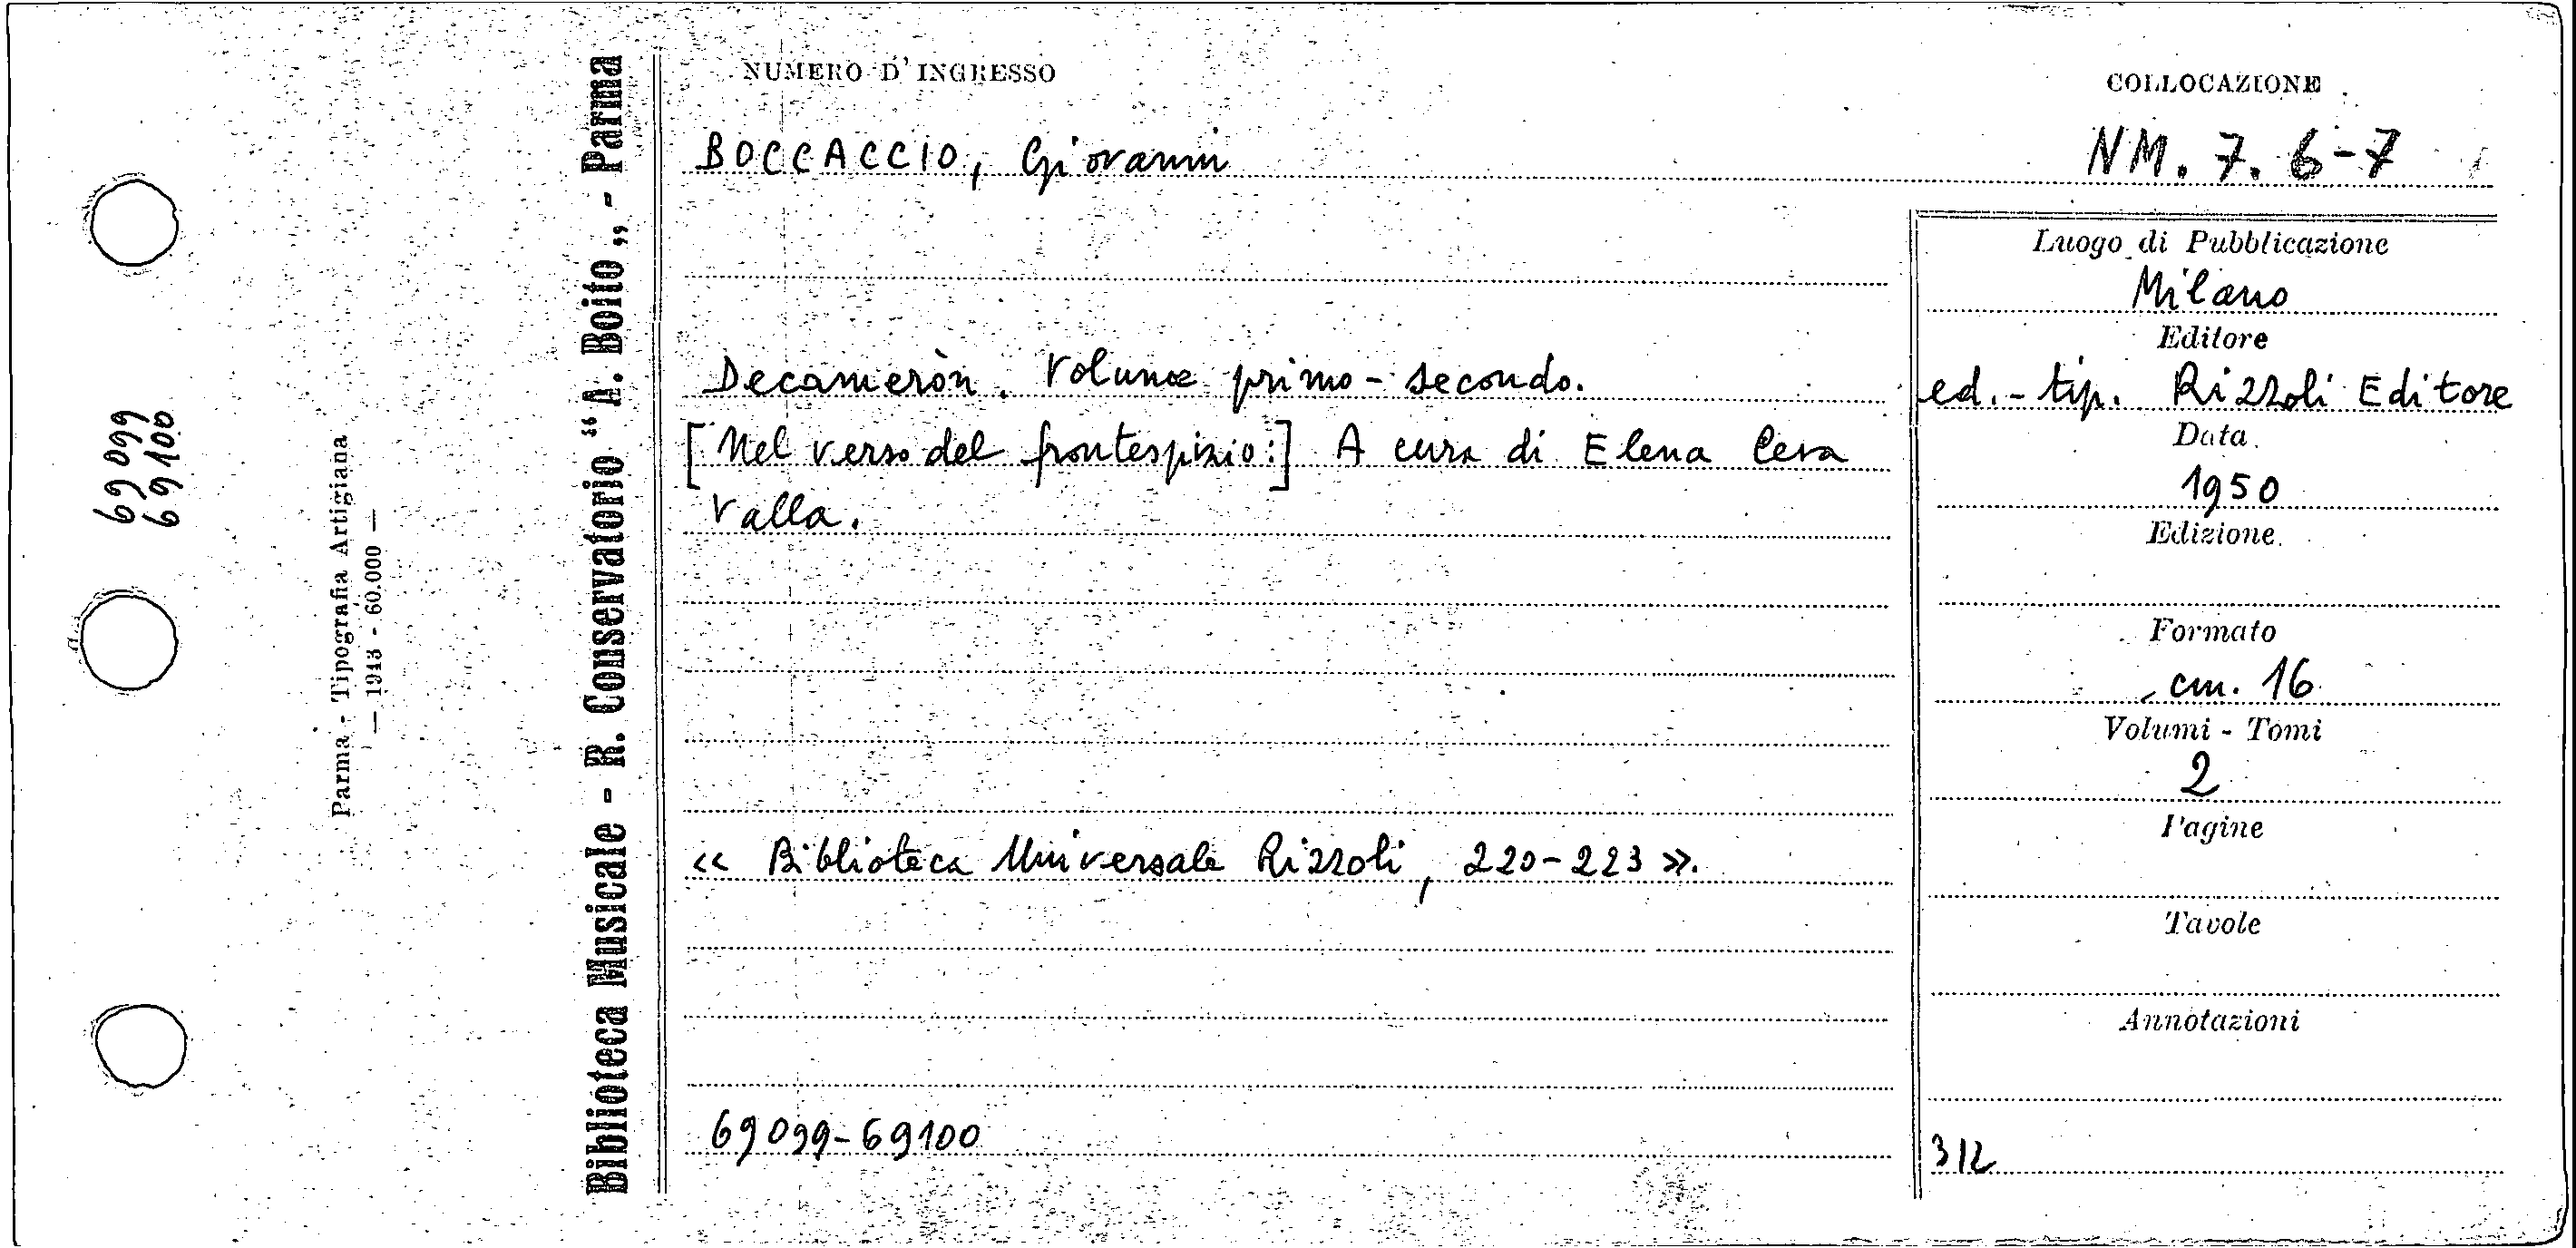 69099
69100
Parma - Tipografia Artigiana
— 1943 - 60.000 —
Biblioteca Musicale - R. Conservatorio “A. Boito„ - Parma
NUMERO D'INGRESSO
BOCCACCIO, Giovanni
Decameròn. Volume primo - secondo.
[Nel verso del frontespizio:] A cura di Elena Ceva
Valla.
« Biblioteca Universale Rizzoli, 220-223 ».
69099-69100
COLLOCAZIONE
NM. 7. 6-7
Luogo di Pubblicazione
Milano
Editore
ed.-tip. Rizzoli Editore
Data
1950
Edizione
Formato
cm. 16
Volumi - Tomi
2
Pagine
Tavole
Annotazioni
312